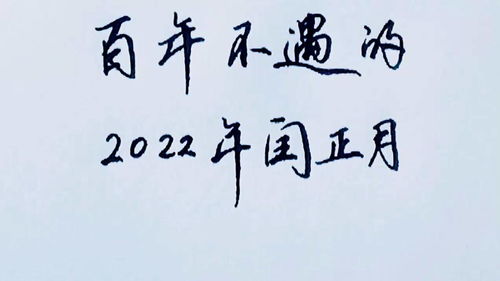 百年不遇的
2022年闰正月